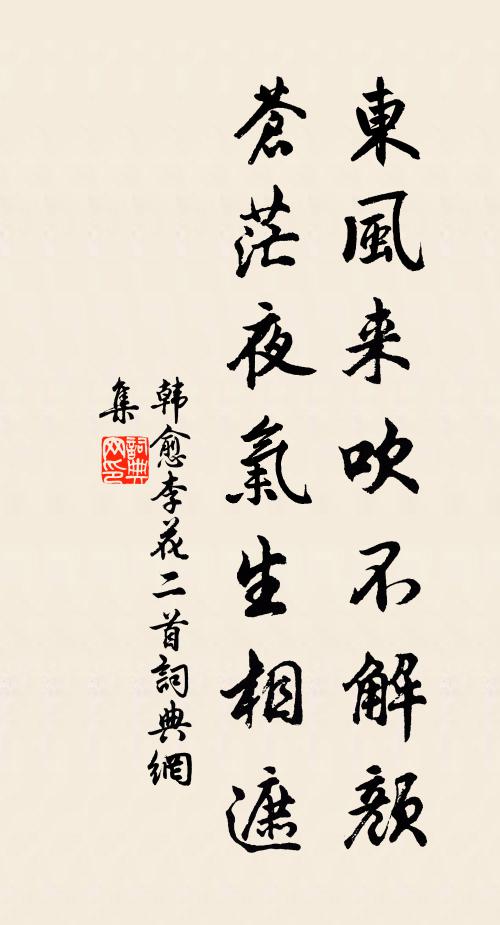 東風来吹不解顏
蒼茫夜氣生相遮
韩愈李花二首詞典網
集
詞典
网印